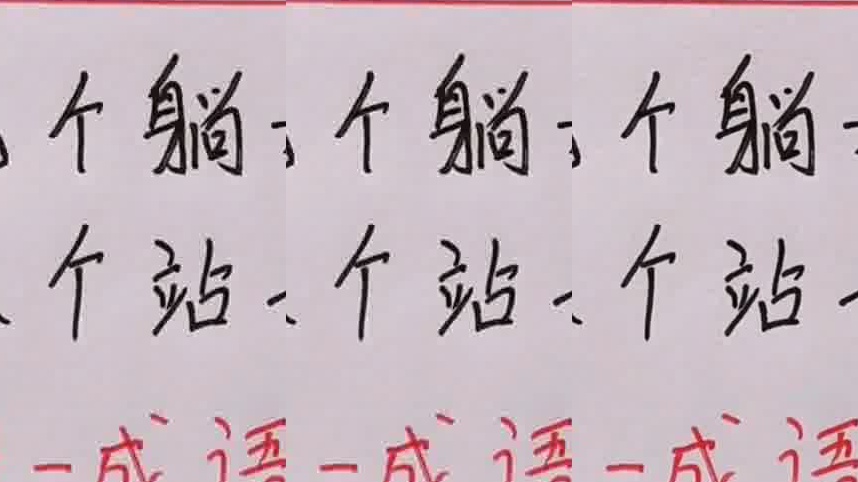 个躺 个躺 个躺
个站 个站 个站
一成语 一成语 一成语